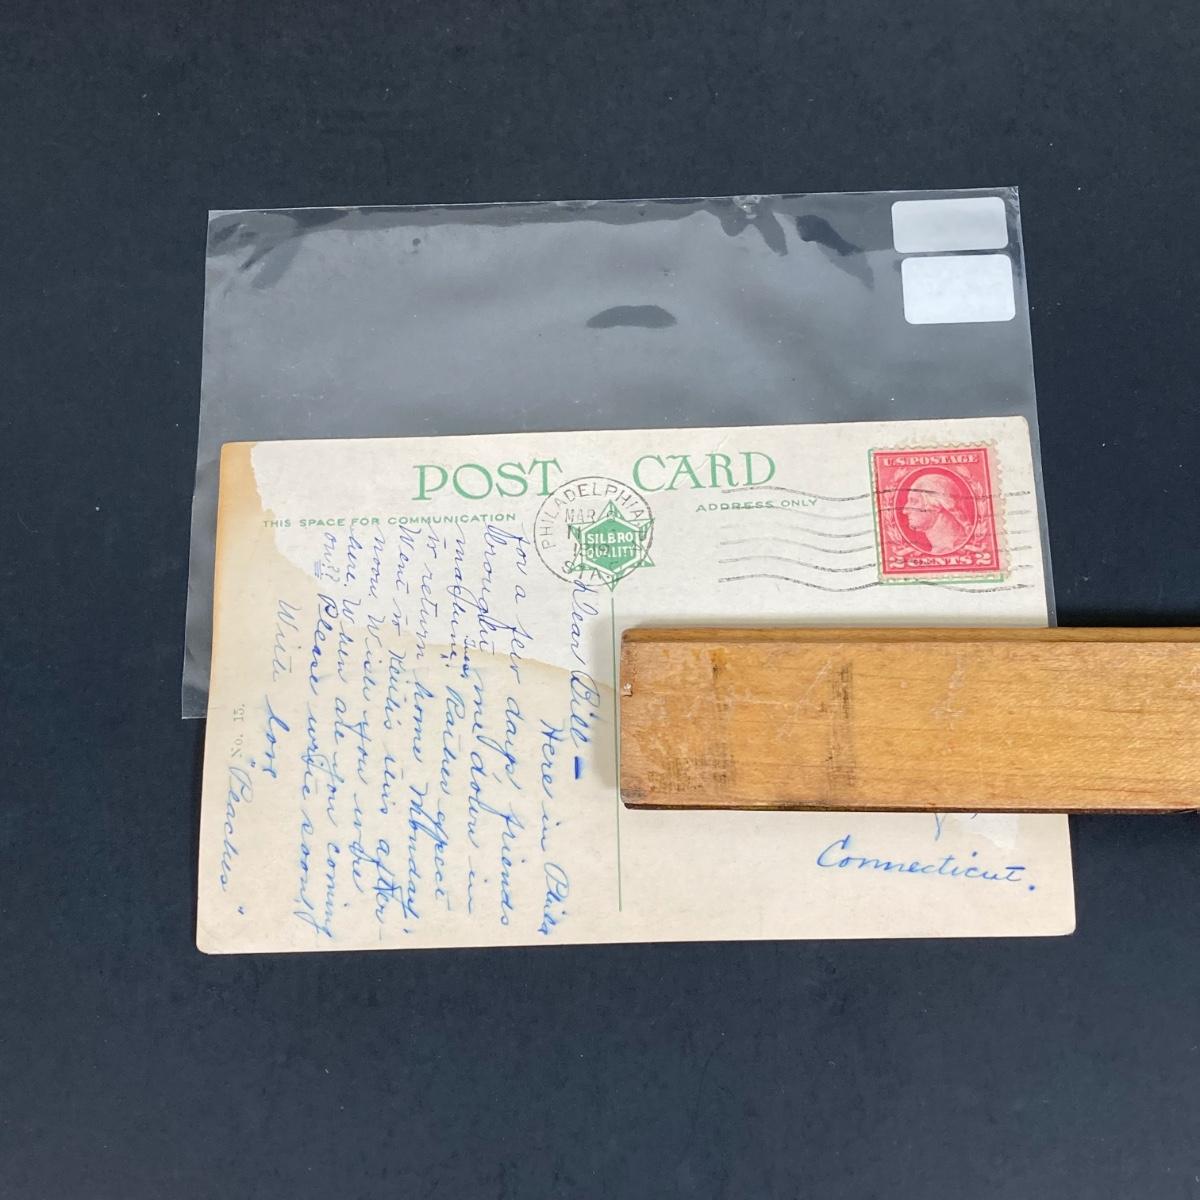 POST CARD
THIS SPACE FOR COMMUNICATION
ADDRESS ONLY
PHILADELPHIA
MAR
PA.
SILBRO
QUALITY
U.S. POSTAGE
2 CENTS 2
Dear Bill —
Here in Phila
for a few days friends
brought me down in
machine. Rather expect
to return home Monday.
Went to Keith's this after-
noon. Wish you were
here. When are you coming
on?? Please write soon.
With love
"Peaches"
No. 15.
Connecticut.